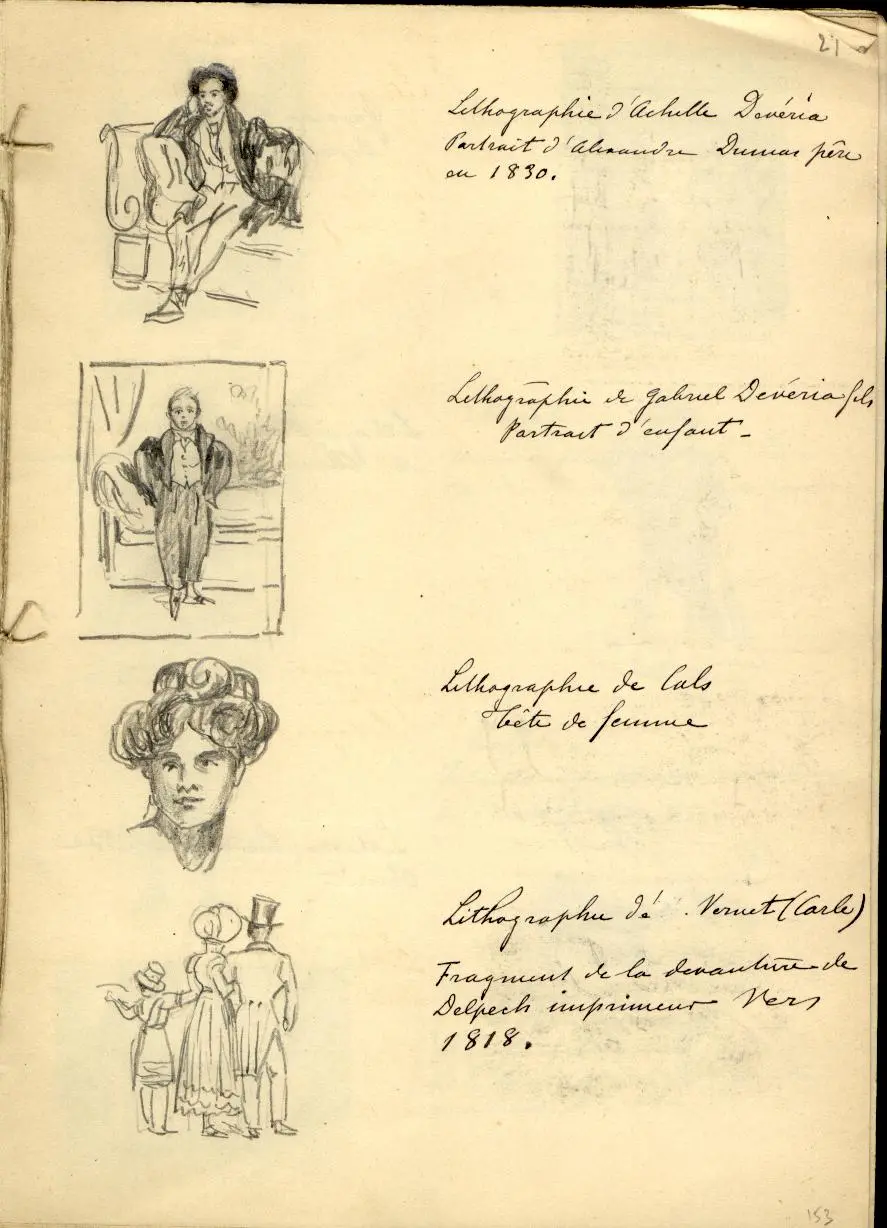 21
Lithographie d'Achille Devéria
Portrait d'Alexandre Dumas père
en 1830.
Lithographie de Gabriel Devéria fils
Portrait d'enfant -
Lithographie de Cals
Tête de femme
Lithographie de Vernet (Carle)
Fragment de la devanture de
Delpech imprimeur Vers
1818.
153